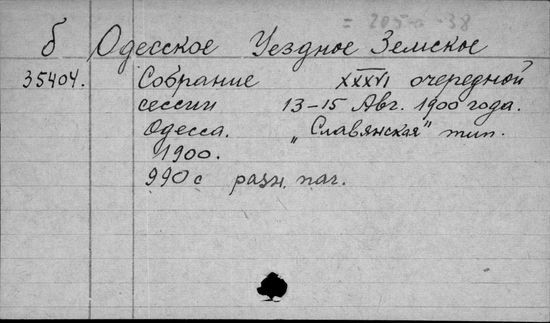 б Одесское Уездное Земское
35404. Собрание XXXVI очередной
сессии 13-15 Авг. 1900 года.
Одесса. „Славянская" тип.
1900.
990 с разн. паг.